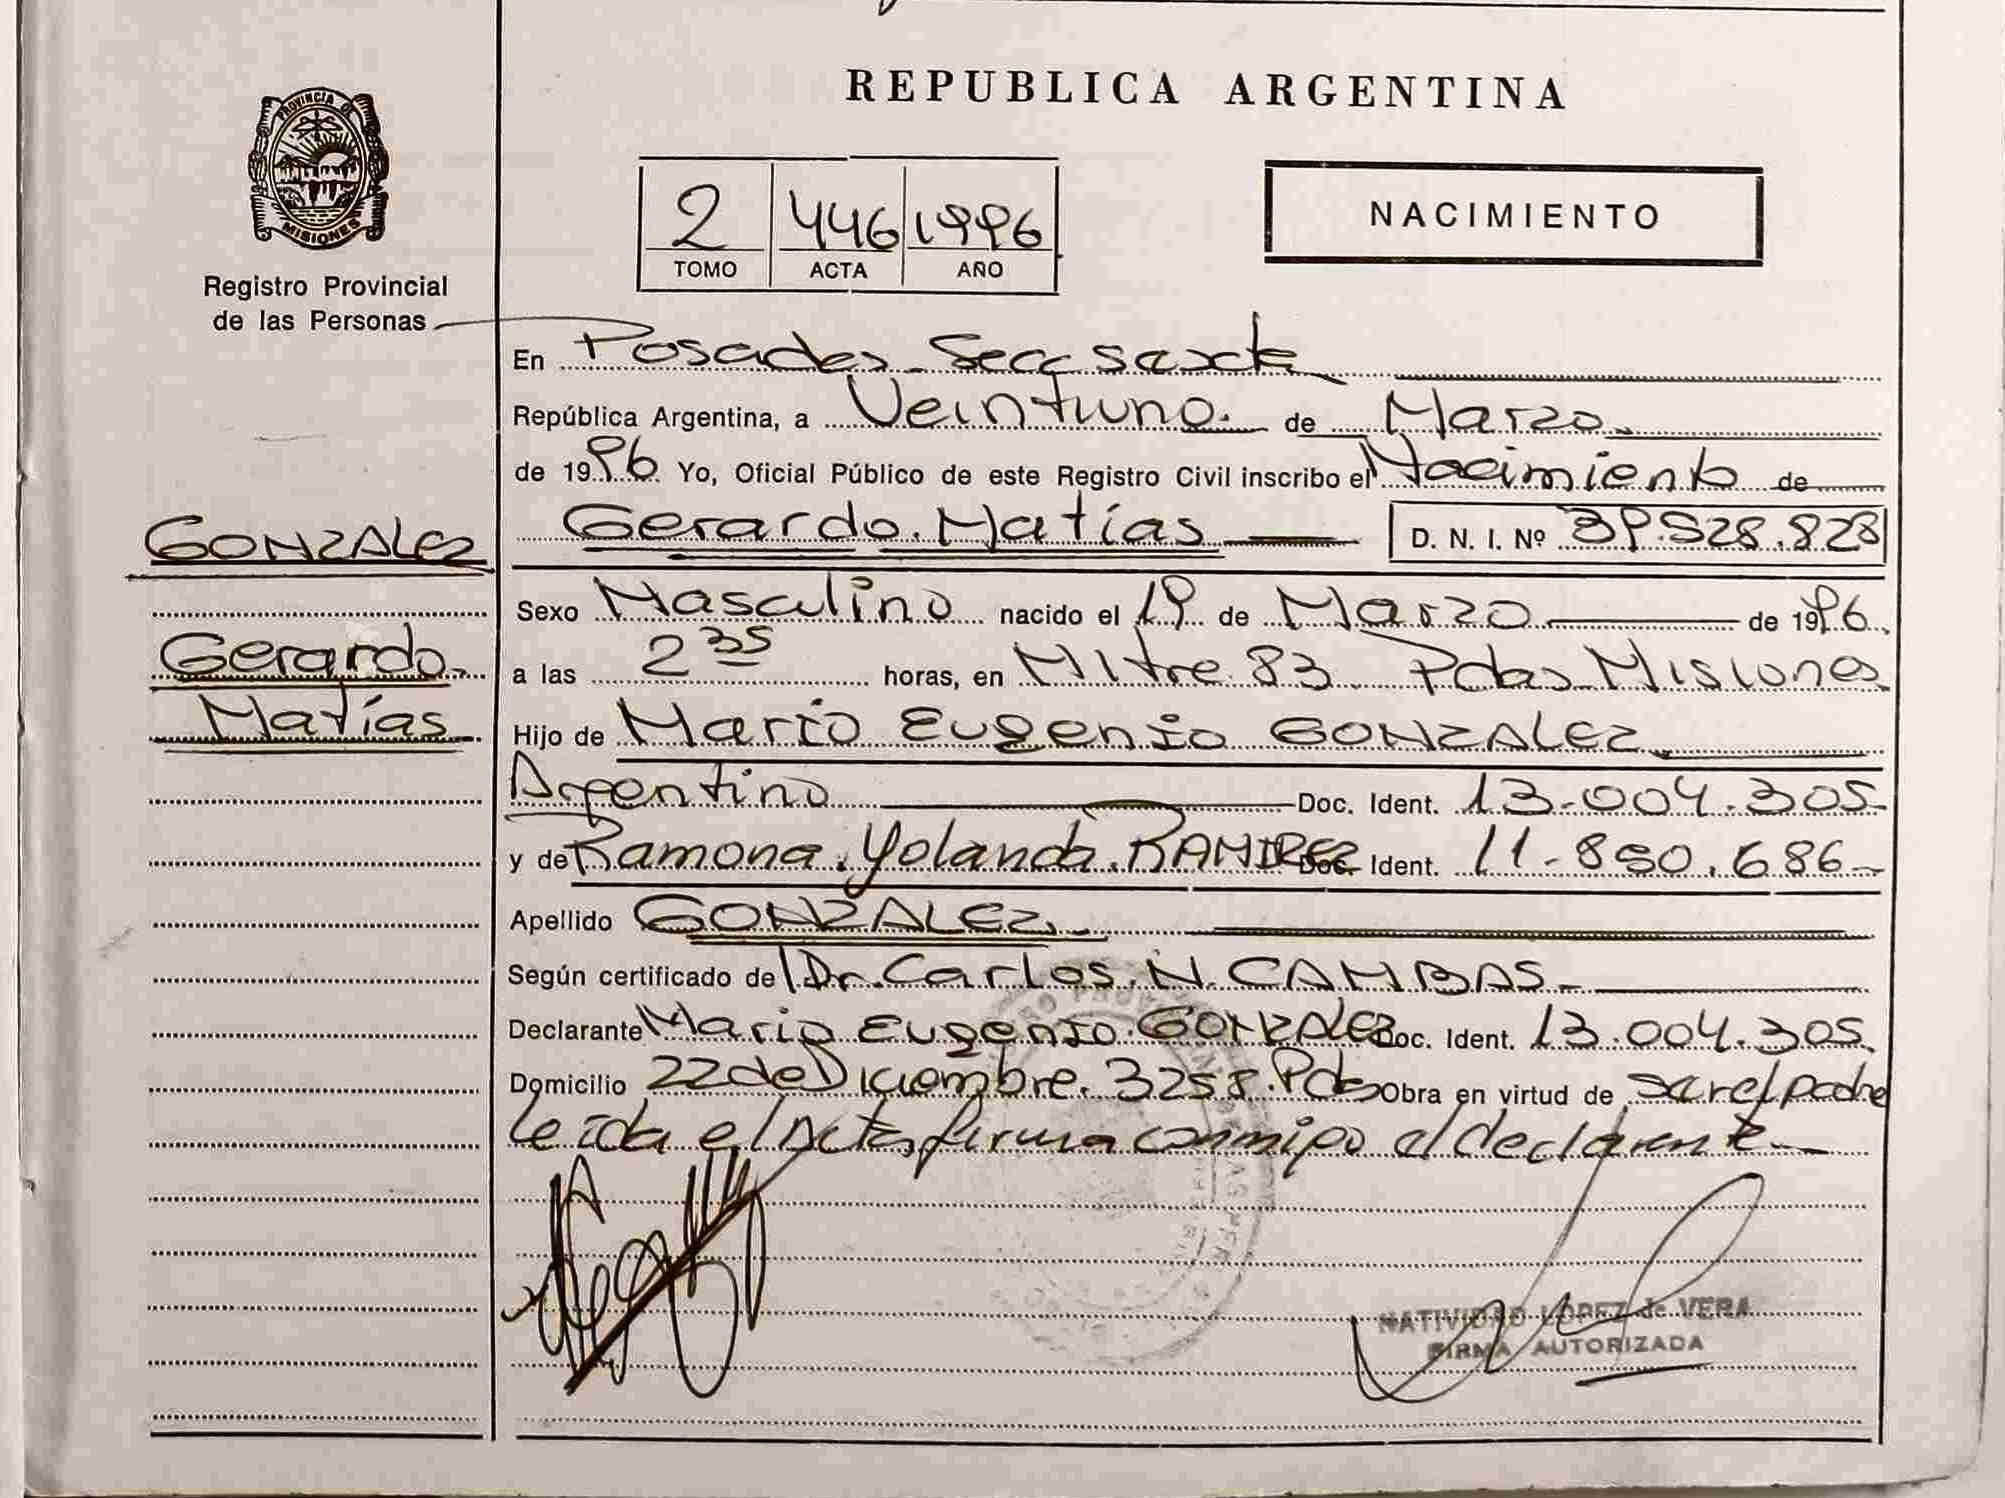 REPUBLICA ARGENTINA
PROVINCIA DE
MISIONES
Registro Provincial
de las Personas
2 446 1996
TOMO ACTA AÑO
NACIMIENTO
En Posadas Secc sexta
República Argentina, a Veintiuno de Marzo
de 1996 Yo, Oficial Público de este Registro Civil inscribo el Nacimiento de
GONZALEZ
Gerardo Matías D. N. I. Nº 39.528.828
Sexo Masculino nacido el 19 de Marzo de 1996
Gerardo
Matías
a las 2 35 horas, en Mitre 83 Pdas Misiones
Hijo de Mario Eugenio GONZALEZ
Argentino Doc. Ident. 13.004.305
y de Ramona Yolanda RAMIREZ Doc. Ident. 11.850.686
Apellido GONZALEZ
Según certificado de Dr. Carlos N. CAMBAS
Declarante Mario Eugenio GONZALEZ Doc. Ident. 13.004.305
Domicilio 22 de Diciembre 3258 Pdas Obra en virtud de ser el padre
leída el Acta, firma conmigo el declarante
NATIVIDAD LOPEZ de VERA
FIRMA AUTORIZADA